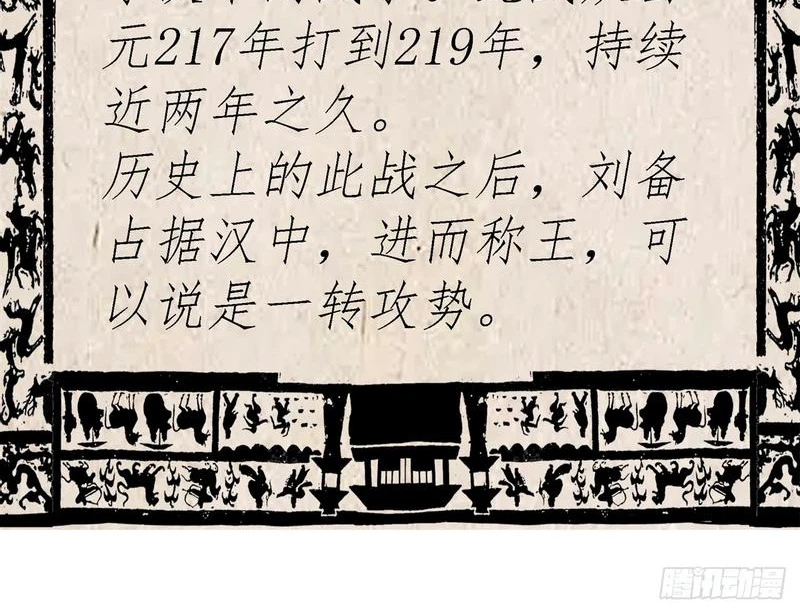 元217年打到219年，持续
近两年之久。
历史上的此战之后，刘备
占据汉中，进而称王，可
以说是一转攻势。
腾讯动漫